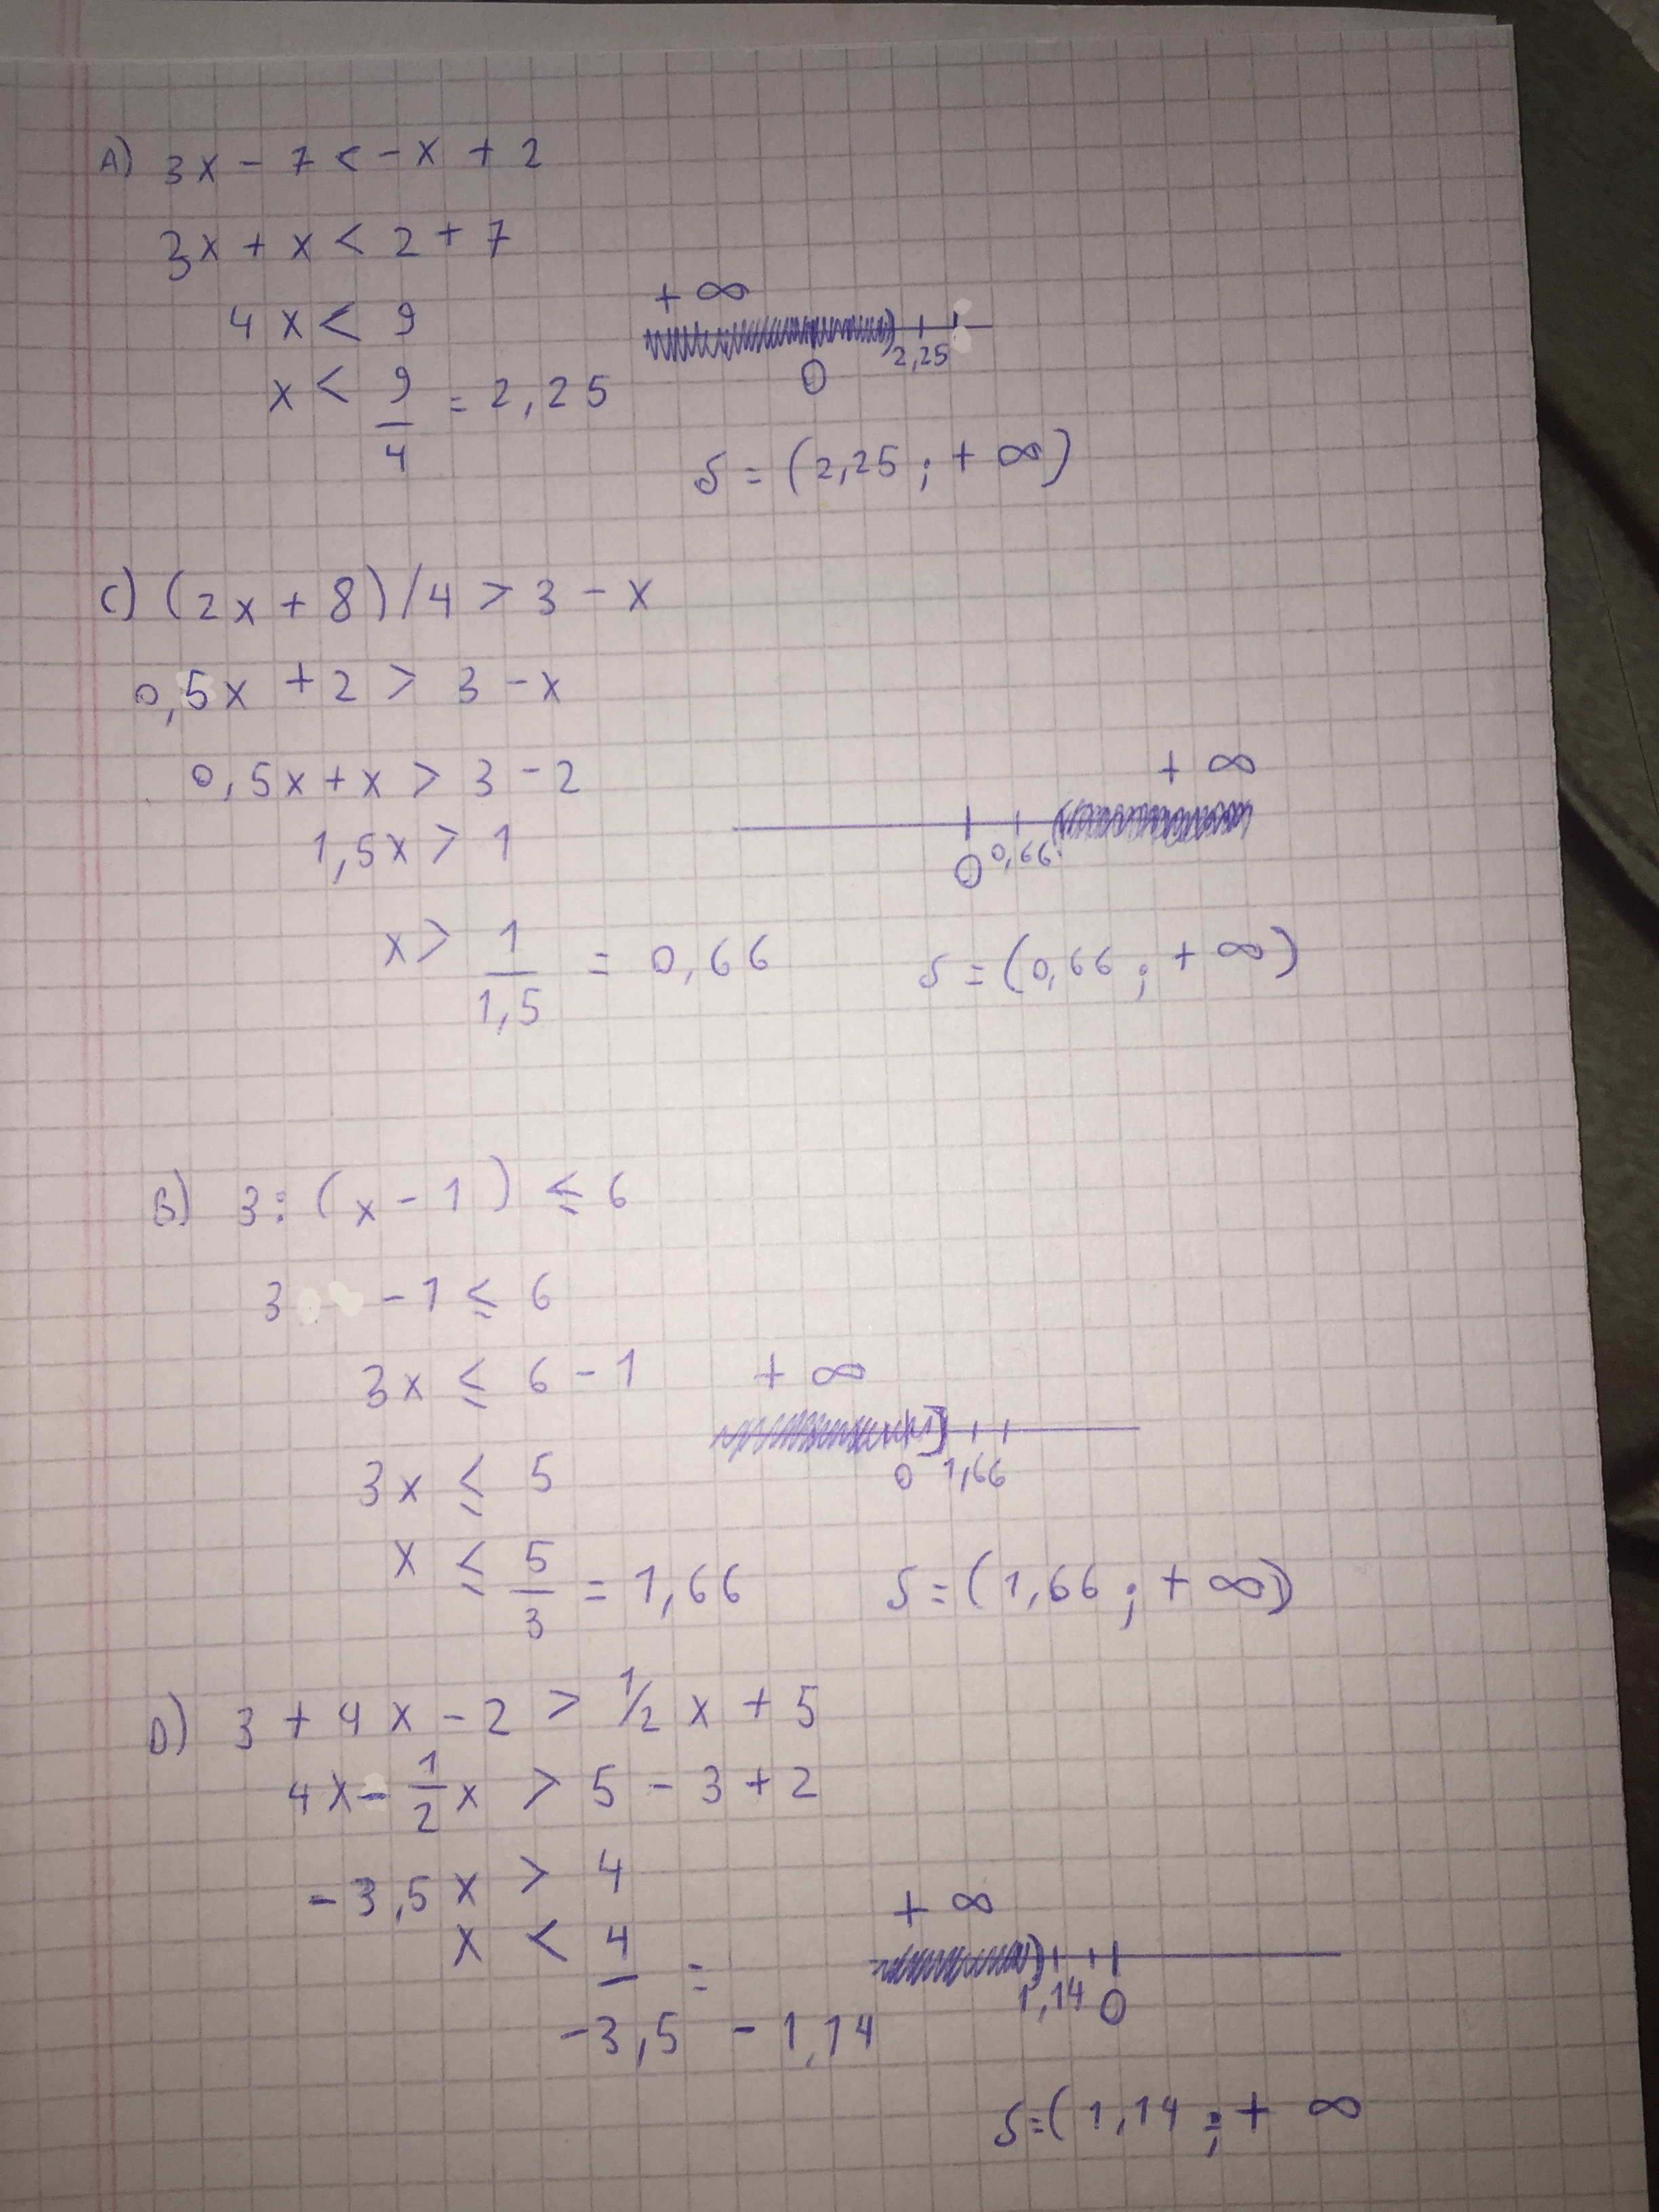 A) 3x - 7 < -x + 2
3x + x < 2 + 7
4x < 9
x < 9/4 = 2,25
+ ∞
0 2,25
S = (2,25 ; + ∞)
C) (2x + 8)/4 > 3 - x
0,5x + 2 > 3 - x
0,5x + x > 3 - 2
1,5x > 1
x > 1/1,5 = 0,66
+ ∞
0 0,66
S = (0,66 ; + ∞)
B) 3: (x - 1) ≤ 6
3 - 1 ≤ 6
3x ≤ 6 - 1
3x ≤ 5
x ≤ 5/3 = 1,66
+ ∞
0 1,66
S = (1,66 ; + ∞)
D) 3 + 4x - 2 > 1/2 x + 5
4x - 1/2 x > 5 - 3 + 2
-3,5x > 4
x < 4/-3,5 = -1,14
+ ∞
1,14 0
S = (1,14 ; + ∞